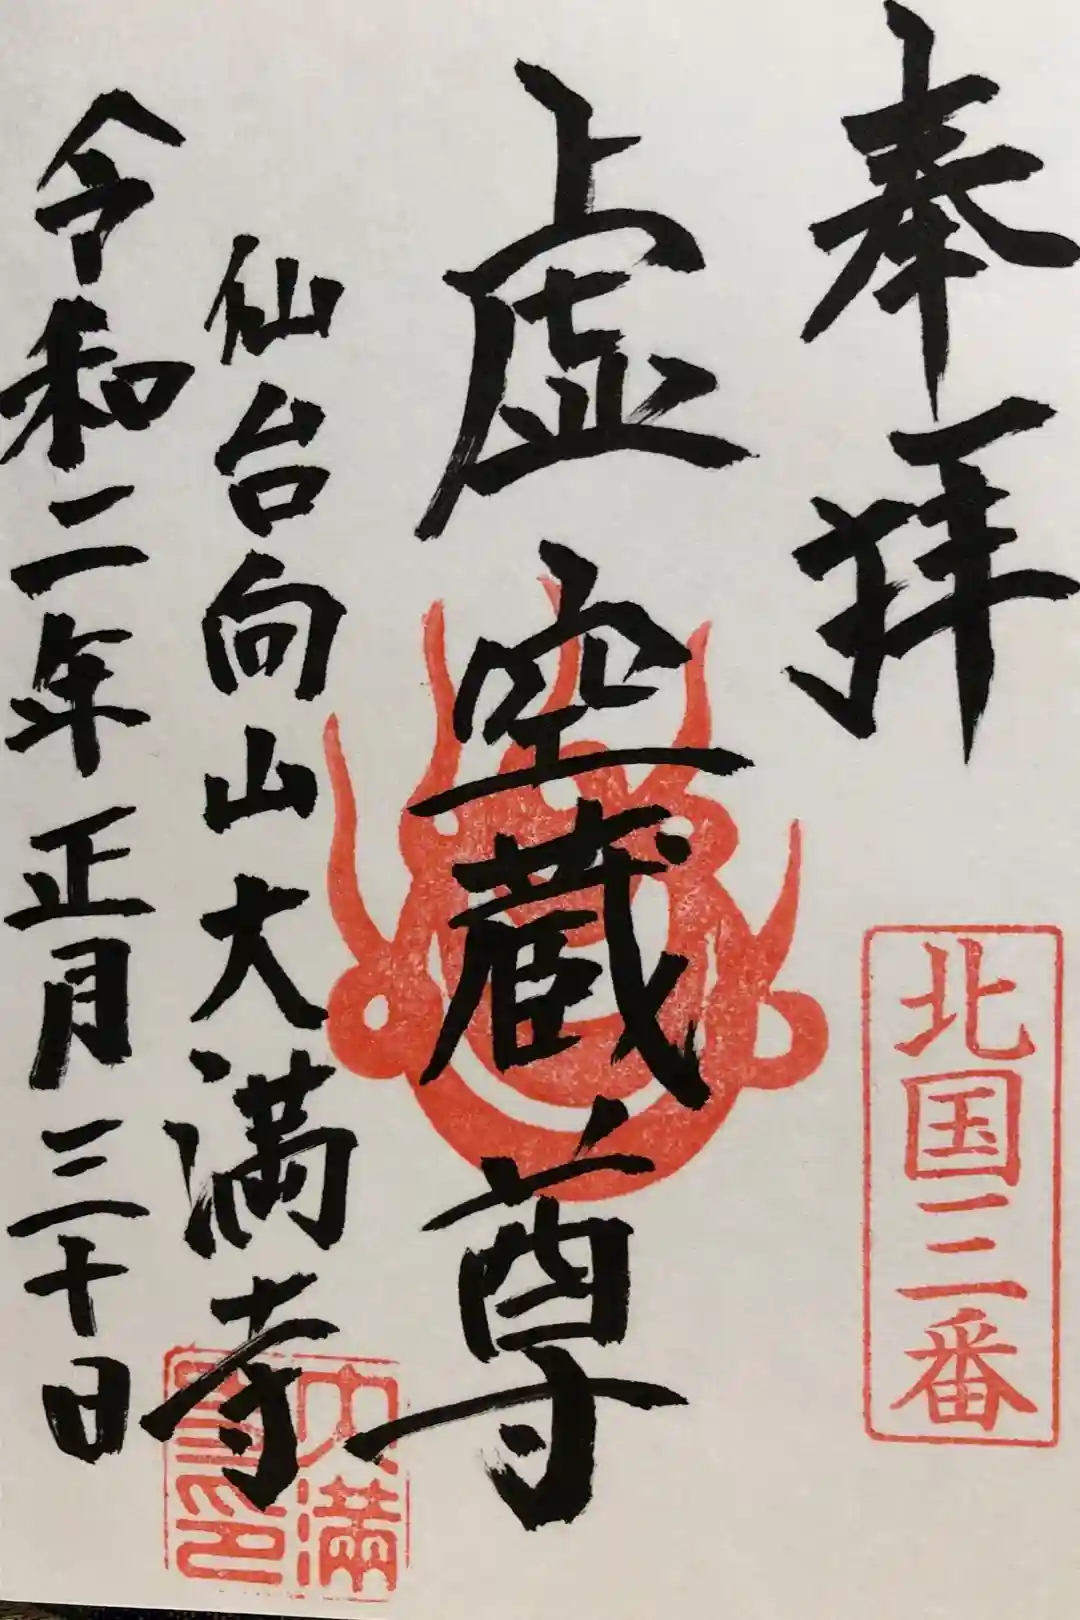 奉拝
北国三番
虚空蔵尊
仙台向山大満寺
大満
令和二年正月三十日